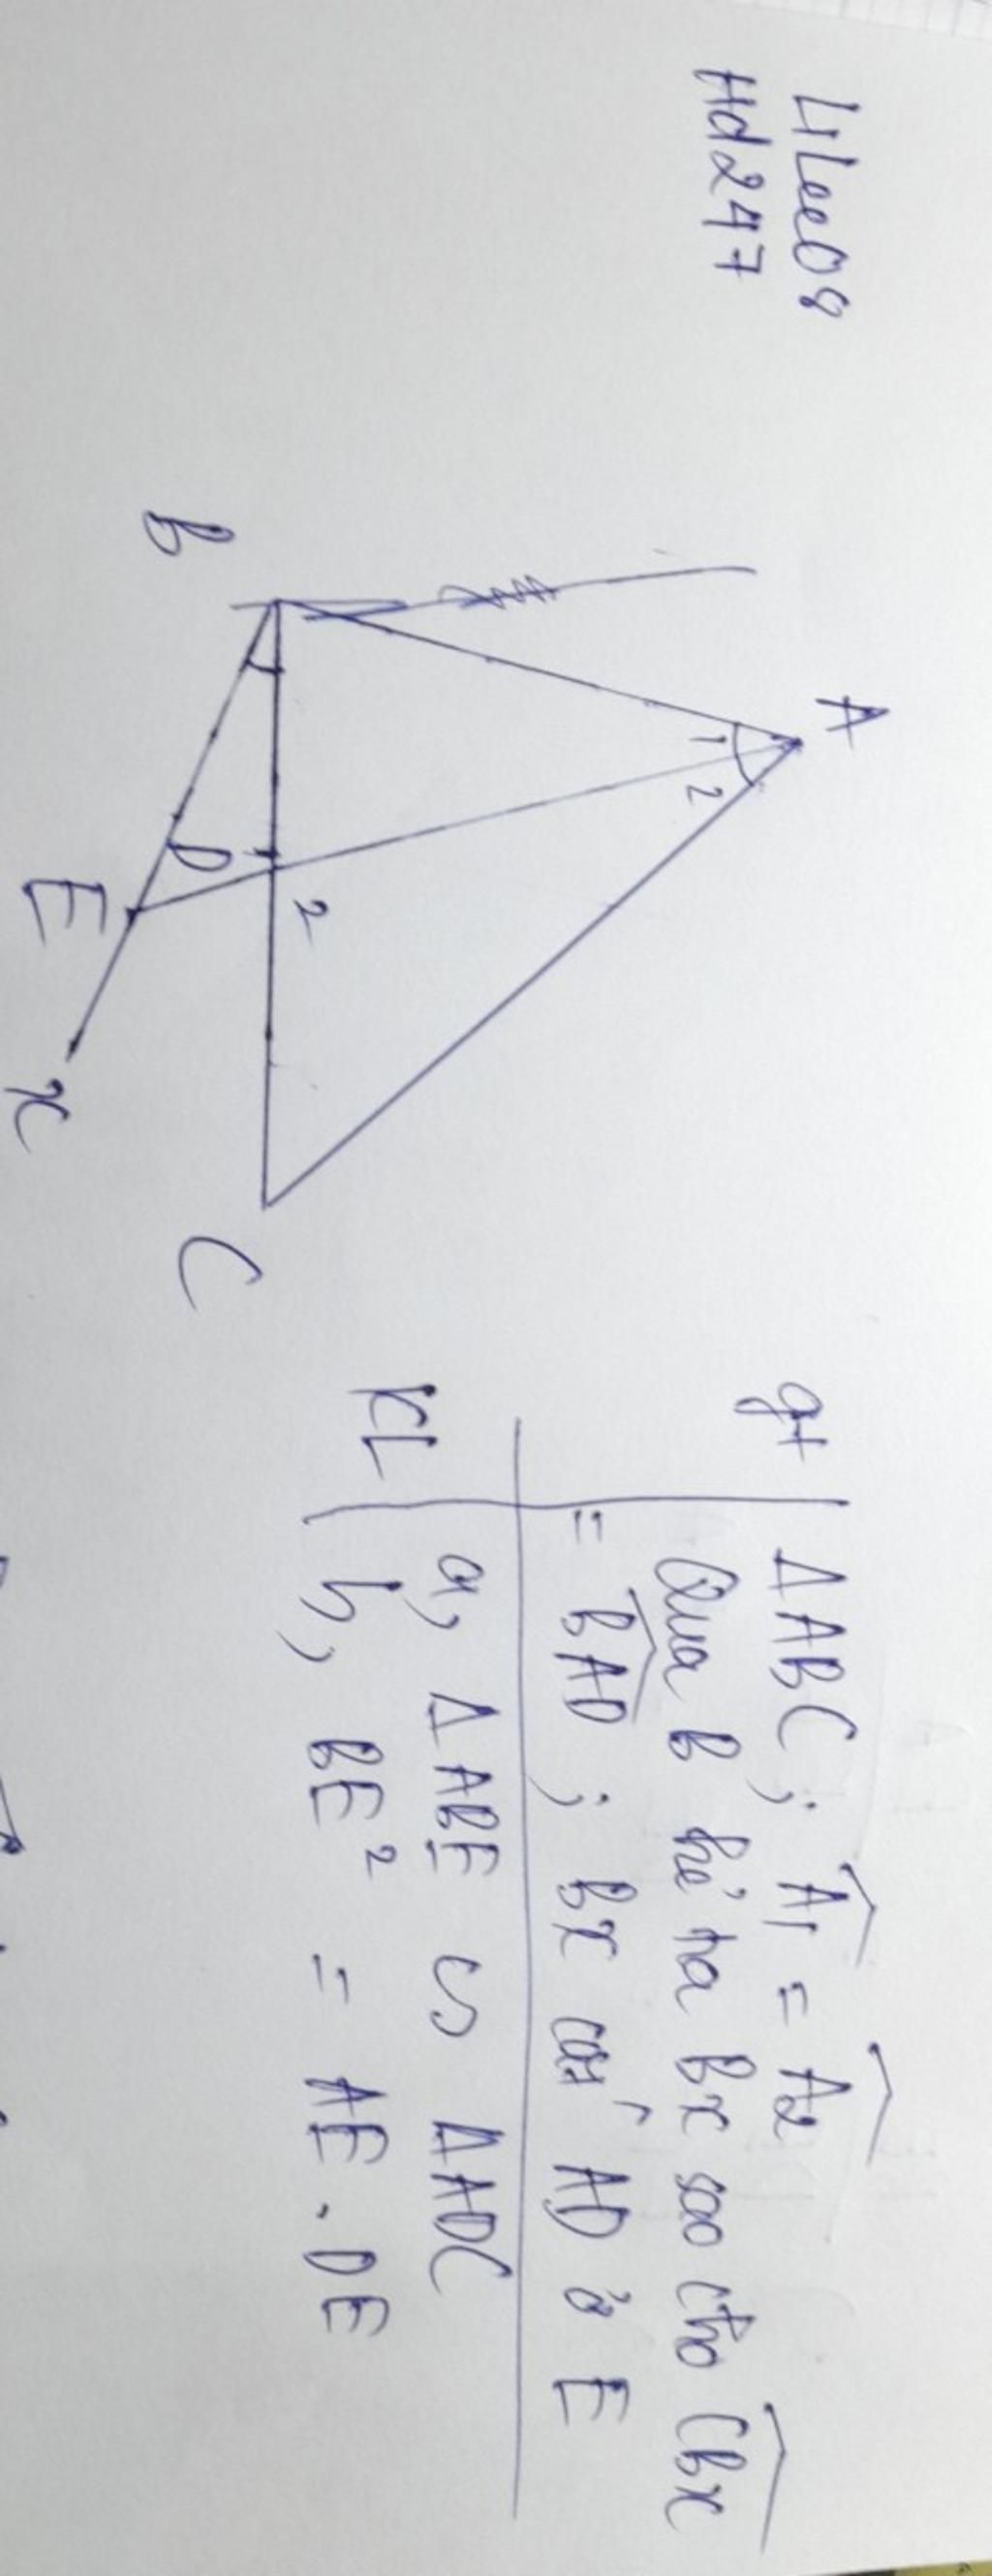 LILee08
Hd247
A
1 2
B
D 1 2
C
E
x
gt ΔABC ; Â1 = Â2
Qua B kẻ tia Bx sao cho CBx
= BAD ; Bx cắt AD ở E
KL a, Δ ABE ∽ Δ ADC
b, BE² = AE . DE